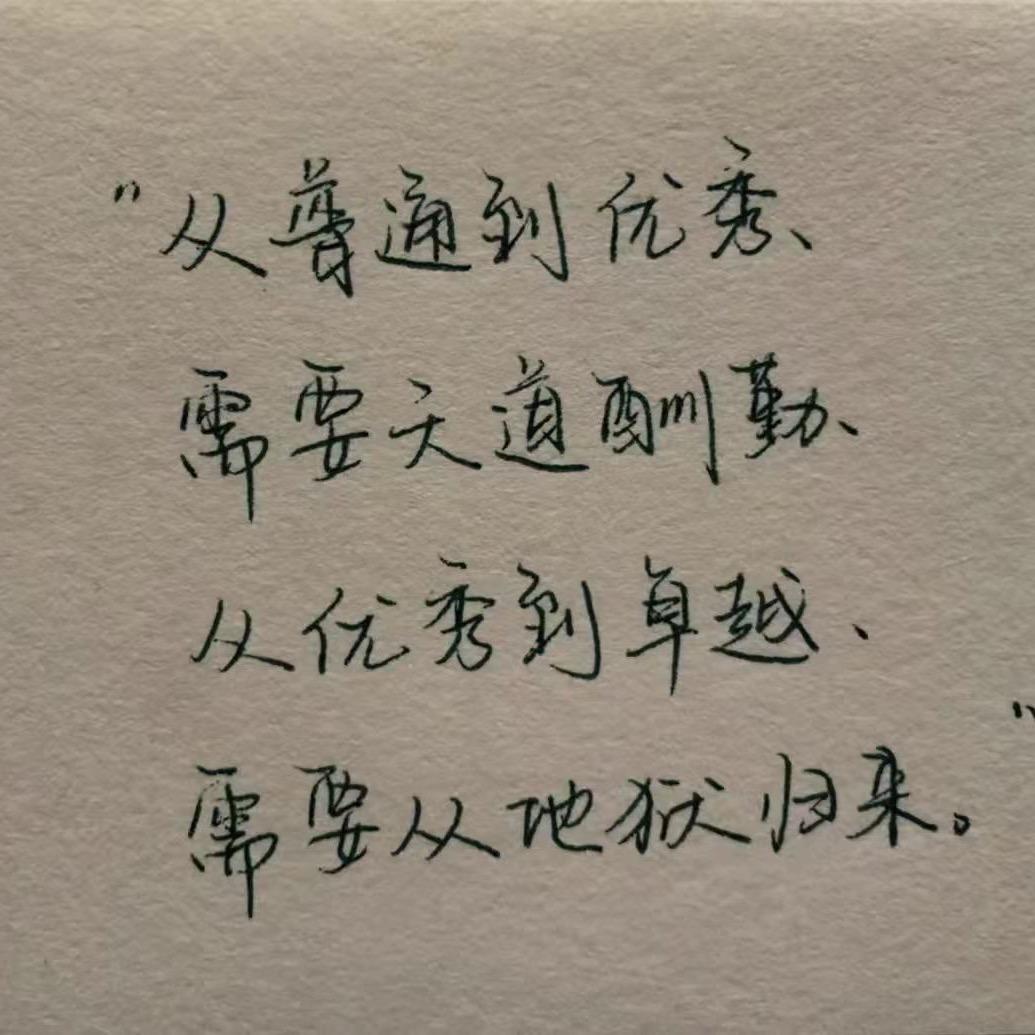 "从普通到优秀、
需要天道酬勤、
从优秀到卓越、
需要从地狱归来。"